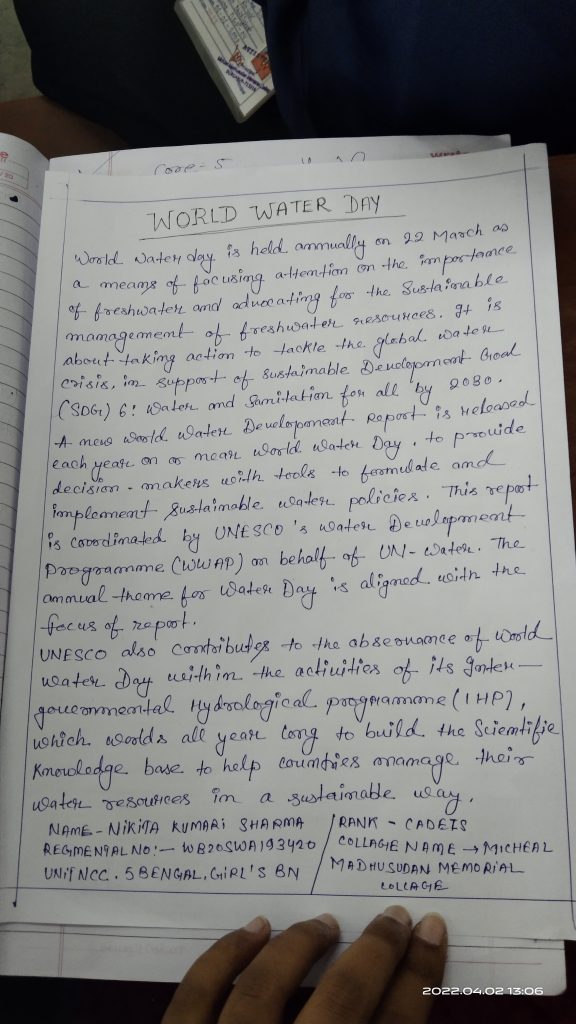 Core-5
WORLD WATER DAY
World Water day is held annually on 22 March as
a means of focusing attention on the importance
of freshwater and advocating for the Sustainable
management of freshwater resources. It is
about taking action to tackle the global water
crisis, in support of sustainable Development Goal
(SDG) 6: Water and Sanitation for all by 2030.
A new World Water Development Report is released
each year on or near World Water Day, to provide
decision-makers with tools to formulate and
implement Sustainable water policies. This report
is coordinated by UNESCO's Water Development
Programme (WWAP) on behalf of UN-Water. The
annual theme for Water Day is aligned with the
focus of report.
UNESCO also contributes to the observance of World
Water Day within the activities of its Inter-
governmental Hydrological programme (IHP),
which worlds all year long to build the Scientific
Knowledge base to help countries manage their
water resources in a sustainable way.
NAME - NIKITA KUMARI SHARMA
REGMENTAL NO:- WB20SWA193420
UNIT NCC. 5 BENGAL, GIRL'S BN
RANK - CADETS
COLLAGE NAME → MICHEAL
MADHUSUDAN MEMORIAL
COLLAGE
2022.04.02 13:06